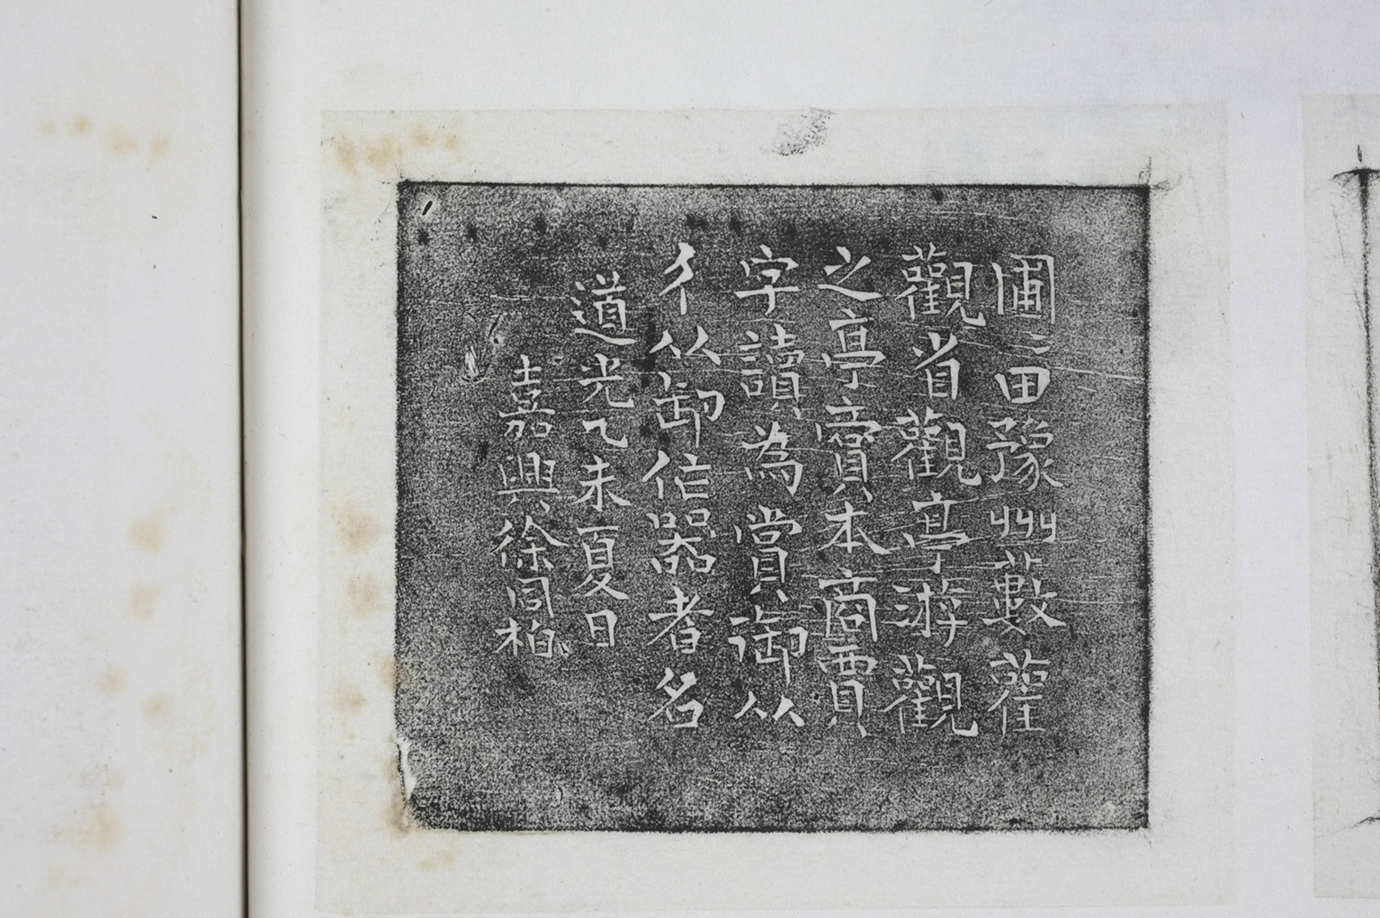 圃二田豫州藪雚
觀省觀亭游觀
之亭𧶜本商賈
字讀為賞御从
彳从卸信器者名
道光乙未夏日
嘉興徐同柏